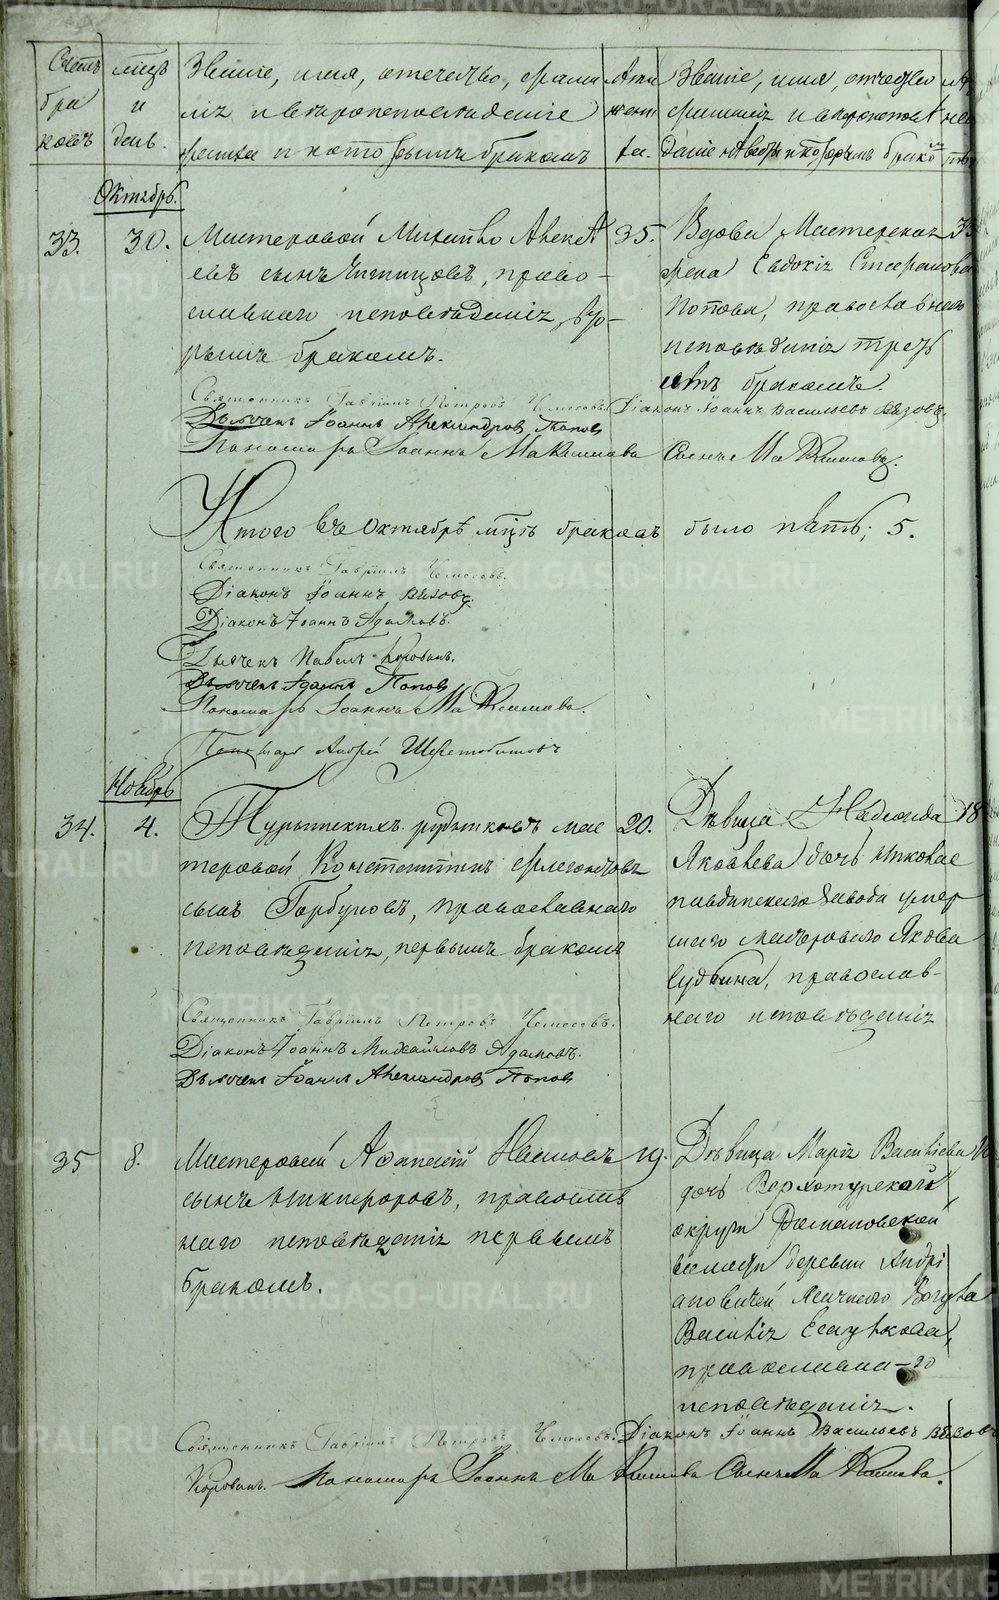 Счетъ бра ковъ
мцъ и день.
Званіе, имя, отечество, фами
лія и вѣроисповѣданіе
жениха и которымъ бракомъ
Лѣта жени ха.
Званіе, имя, отчество
фамилія и вѣроисповѣ
даніе невѣсты и которымъ бракомъ
Октябрь.
33. 30.
Мастеровой
евъ сынъ Чипицовъ, право-
славнаго исповѣданія, вто-
рымъ бракомъ.
35.
Вдова Мастерская
жена Евдокія Стефанова
Попова, православнаго
исповѣданія треть
имъ бракомъ.
Священникъ Гавріилъ Петровъ Діаконъ Іоаннъ Васильевъ Вязовъ.
Дьячекъ Іоаннъ Александровъ Поповъ
Пономарь Іоаннъ Максимовъ Сынъ Максимовъ.
Итого въ Октябрѣ мцѣ браковъ было пять; 5.
Священникъ Гавріилъ
Діаконъ Іоаннъ Вязовъ.
Діаконъ Іоаннъ Адамовъ.
Дьячекъ Павелъ Коровинъ.
Дьячекъ Іоаннъ Поповъ
Пономарь Іоаннъ Максимовъ.
Пономарь Андрей
Ноябрь
34. 4.
Турьинскихъ рудниковъ мас
теровой Константинъ Флегонтовъ
сынъ Горбуновъ, православнаго
исповѣданія, первымъ бракомъ
20.
Дѣвица Надежда
Яковлева дочь Николае
павдинскаго Завода умер
шаго мастероваго Якова
православ-
наго исповѣданія
18
Священникъ Гавріилъ Петровъ
Діаконъ Іоаннъ Михайловъ Адамовъ.
Дьячекъ Іоаннъ Александровъ Поповъ
35 8.
Мастеровой Афанасій Ивановъ
сынъ Никифоровъ, православ
наго исповѣданія первымъ
бракомъ.
19.
Дѣвица Марія Васильева
дочь Верхотурскаго
округа Романовской
волости деревни Андрі
ановичей Ясачнаго Вогула
Василія Есаулкова,
православна-го
исповѣданія.
Священникъ Гавріилъ Петровъ Діаконъ Іоаннъ Васильевъ Вязовъ
Коровинъ. Пономарь Іоаннъ Максимовъ Сынъ Максимовъ.
METRIKI.GASO-URAL.RU